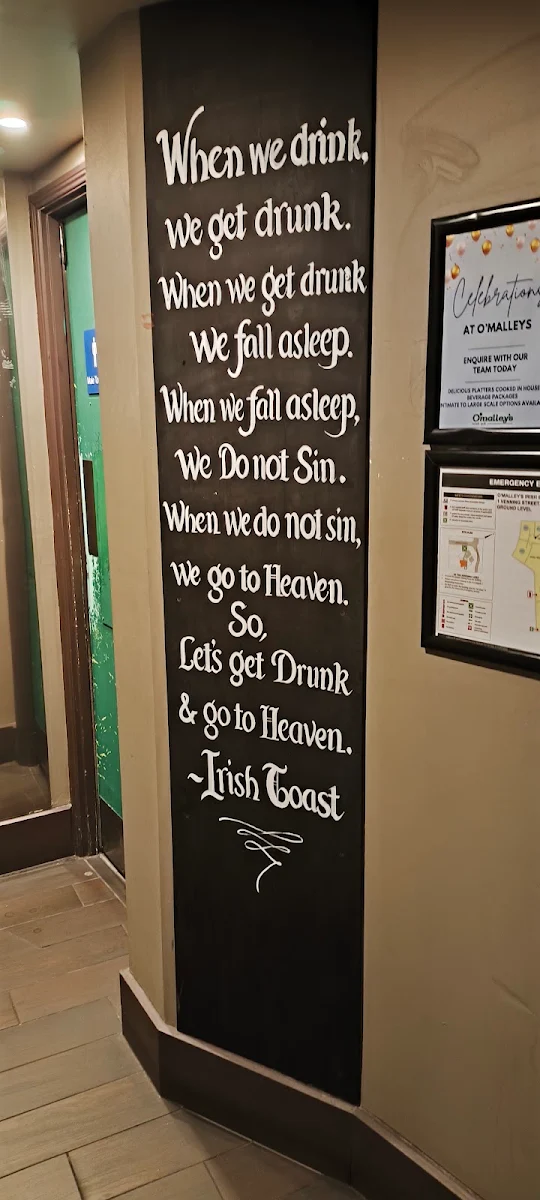 When we drink,
we get drunk.
When we get drunk
We fall asleep.
When we fall asleep,
We Do not Sin.
When We do not sin,
We go to Heaven.
So,
Let's get Drunk
& go to Heaven.
~Irish Toast
Celebrations
AT O'MALLEYS
ENQUIRE WITH OUR
TEAM TODAY
DELICIOUS PLATTERS COOKED IN HOUSE
BEVERAGE PACKAGES
TO LARGE SCALE OPTIONS
O'malley's
EMERGENCY
O'MALLEY'S IRISH
1 VENNING STREET
GROUND LEVEL